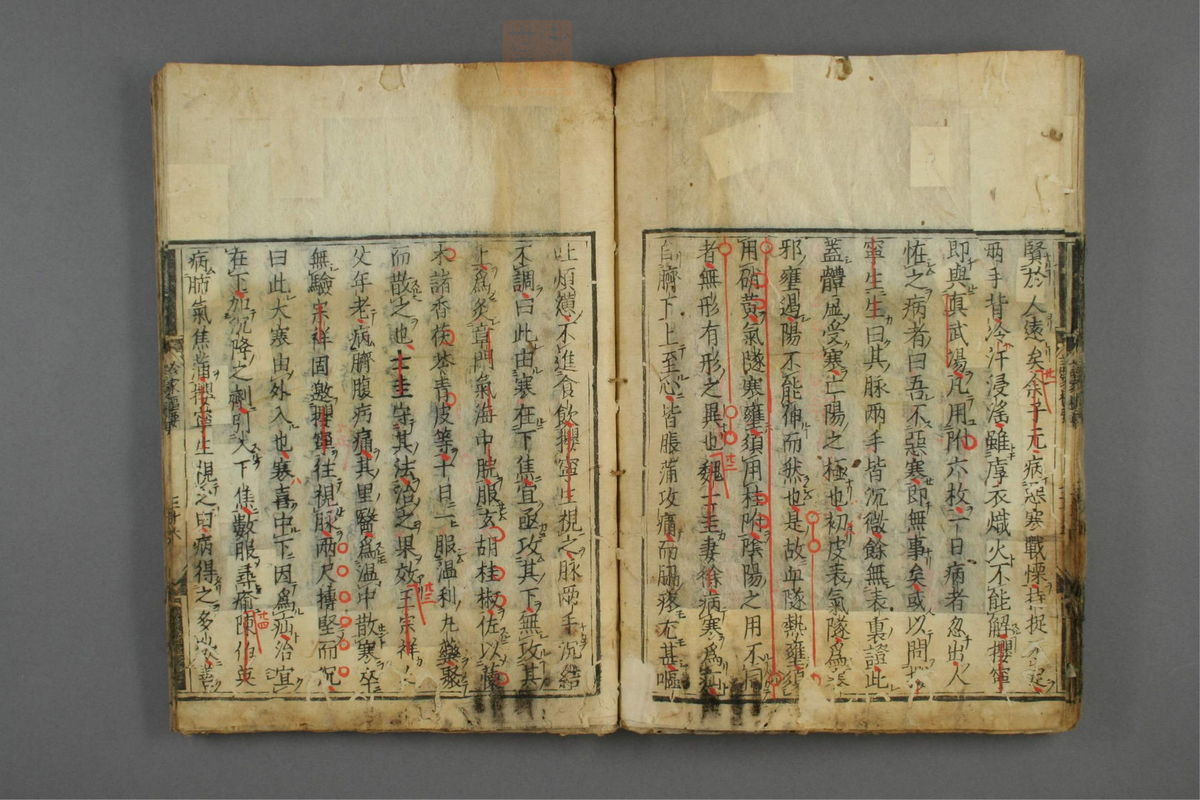 賢於人遠矣余子元病惡寒戰慄持捉不定
兩手背冷汗浸淫雖厚衣熾火不能解攖寧
即與真武湯凡用附六枚一日病者忽出人
恠之病者曰吾不惡寒即無事矣或以問攖
寧生生曰其脉兩手皆沉微餘無表裏證此
蓋體虛受寒亡陽之極也初皮表氣隧爲寒
邪壅遏陽不能伸而然也是故血隧熱壅須
用硝黄氣隧寒壅須用桂附陰陽之用不同
者無形有形之異也魏士圭妻徐病寒爲疝
自臍下上至心皆脹滿攻痛而脇疼尤甚嘔
吐煩懣不進食飲攖寧生視之脉兩手沉結
不調曰此由寒在下焦宜亟攻其下無攻其
上爲灸章門氣海中脘服玄胡桂椒佐以
木諸香茯苓青皮等十日一服溫利丸藥聚
而散之也士圭守其法治之果效王宗祥
父年老病臍腹病痛其里醫爲温中散寒卒
無驗宗祥固邀攖寧往視脉兩尺摶堅而沉
曰此大寒由外入也寒喜中下因爲疝治宜
在下加沉降之劑引入下焦數服尋瘉陳伯英
病肺氣焦滿攖寧生視之曰病得之多